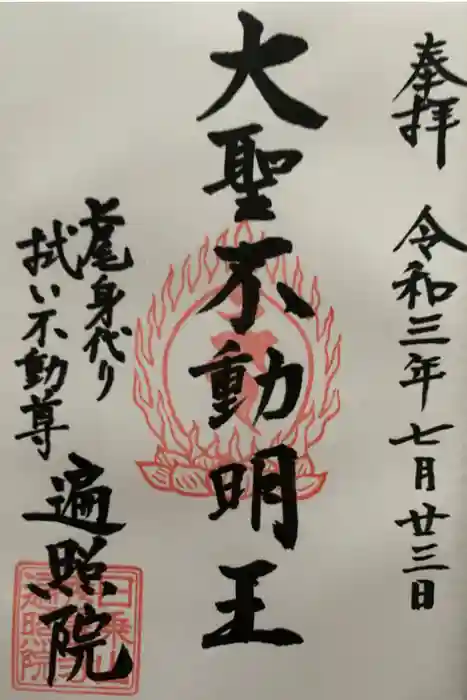 奉拝
令和三年七月廿三日
大聖不動明王
七尾身代り
拭い不動尊
遍照院